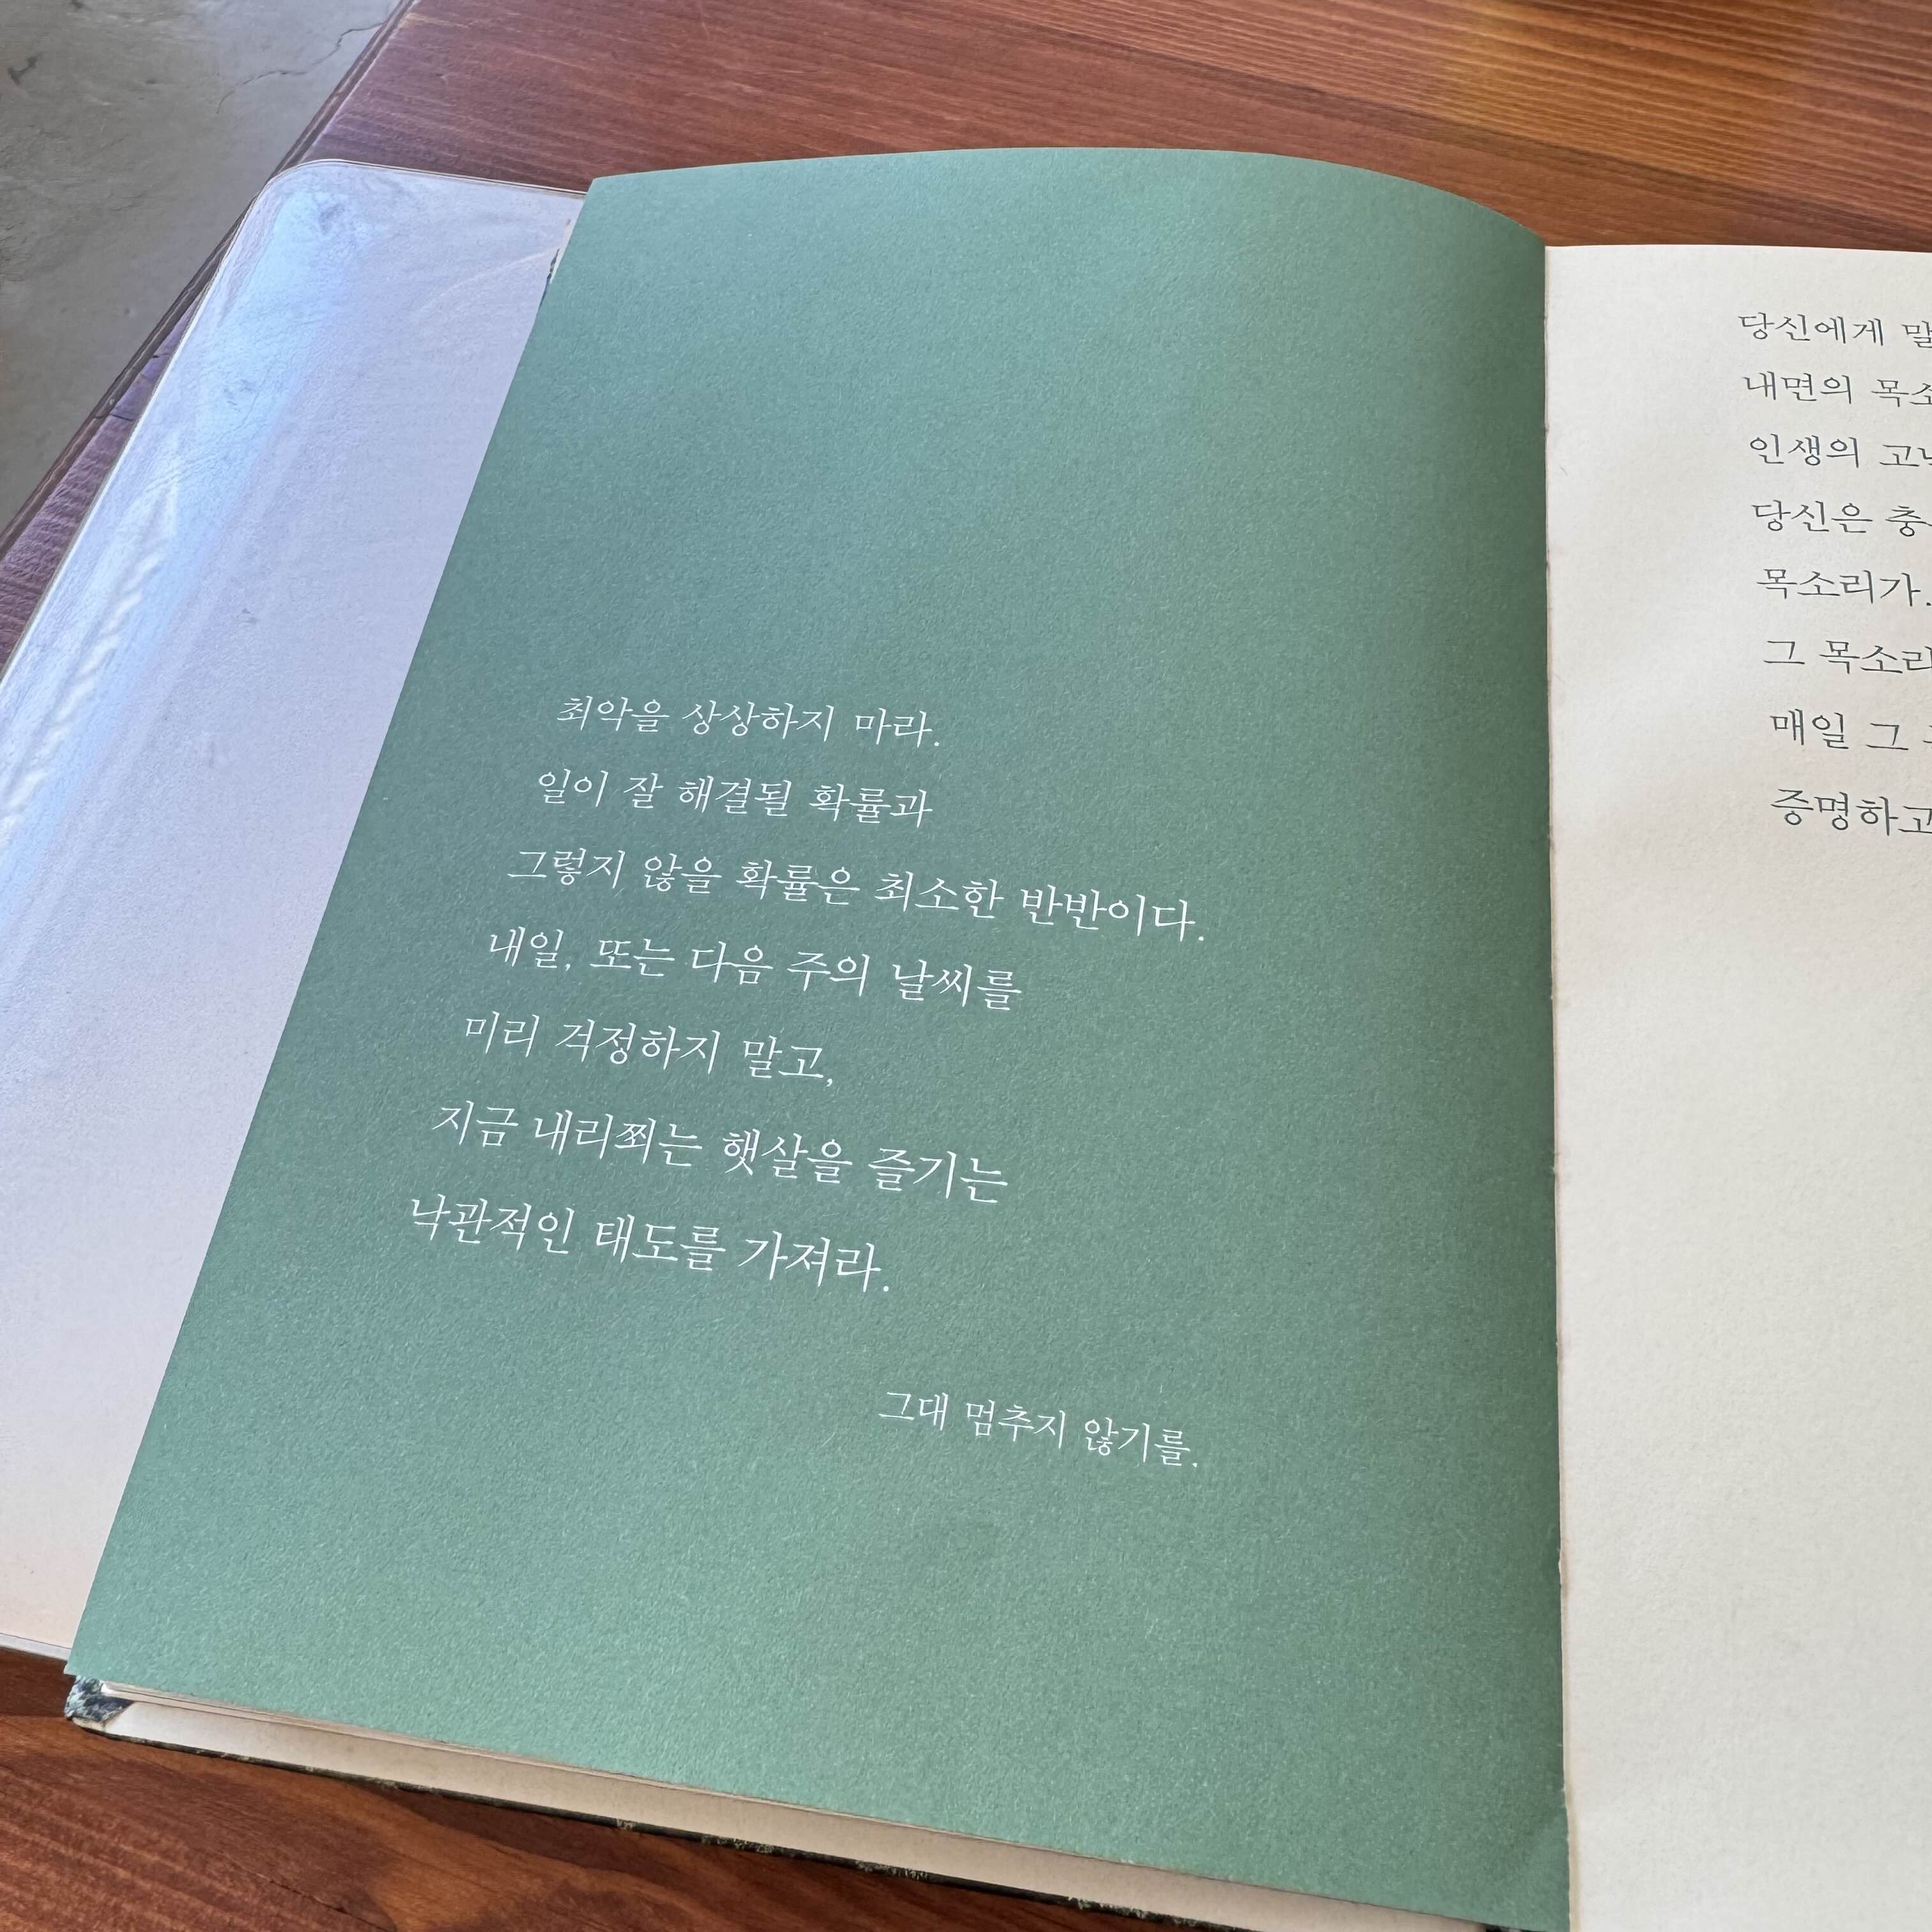 최악을 상상하지 마라.
일이 잘 해결될 확률과
그렇지 않을 확률은 최소한 반반이다.
내일, 또는 다음 주의 날씨를
미리 걱정하지 말고,
지금 내리쬐는 햇살을 즐기는
낙관적인 태도를 가져라.
그대 멈추지 않기를.
당신에게
내면의
인생의
당신은
목소리가.
그
매일 그
증명하고